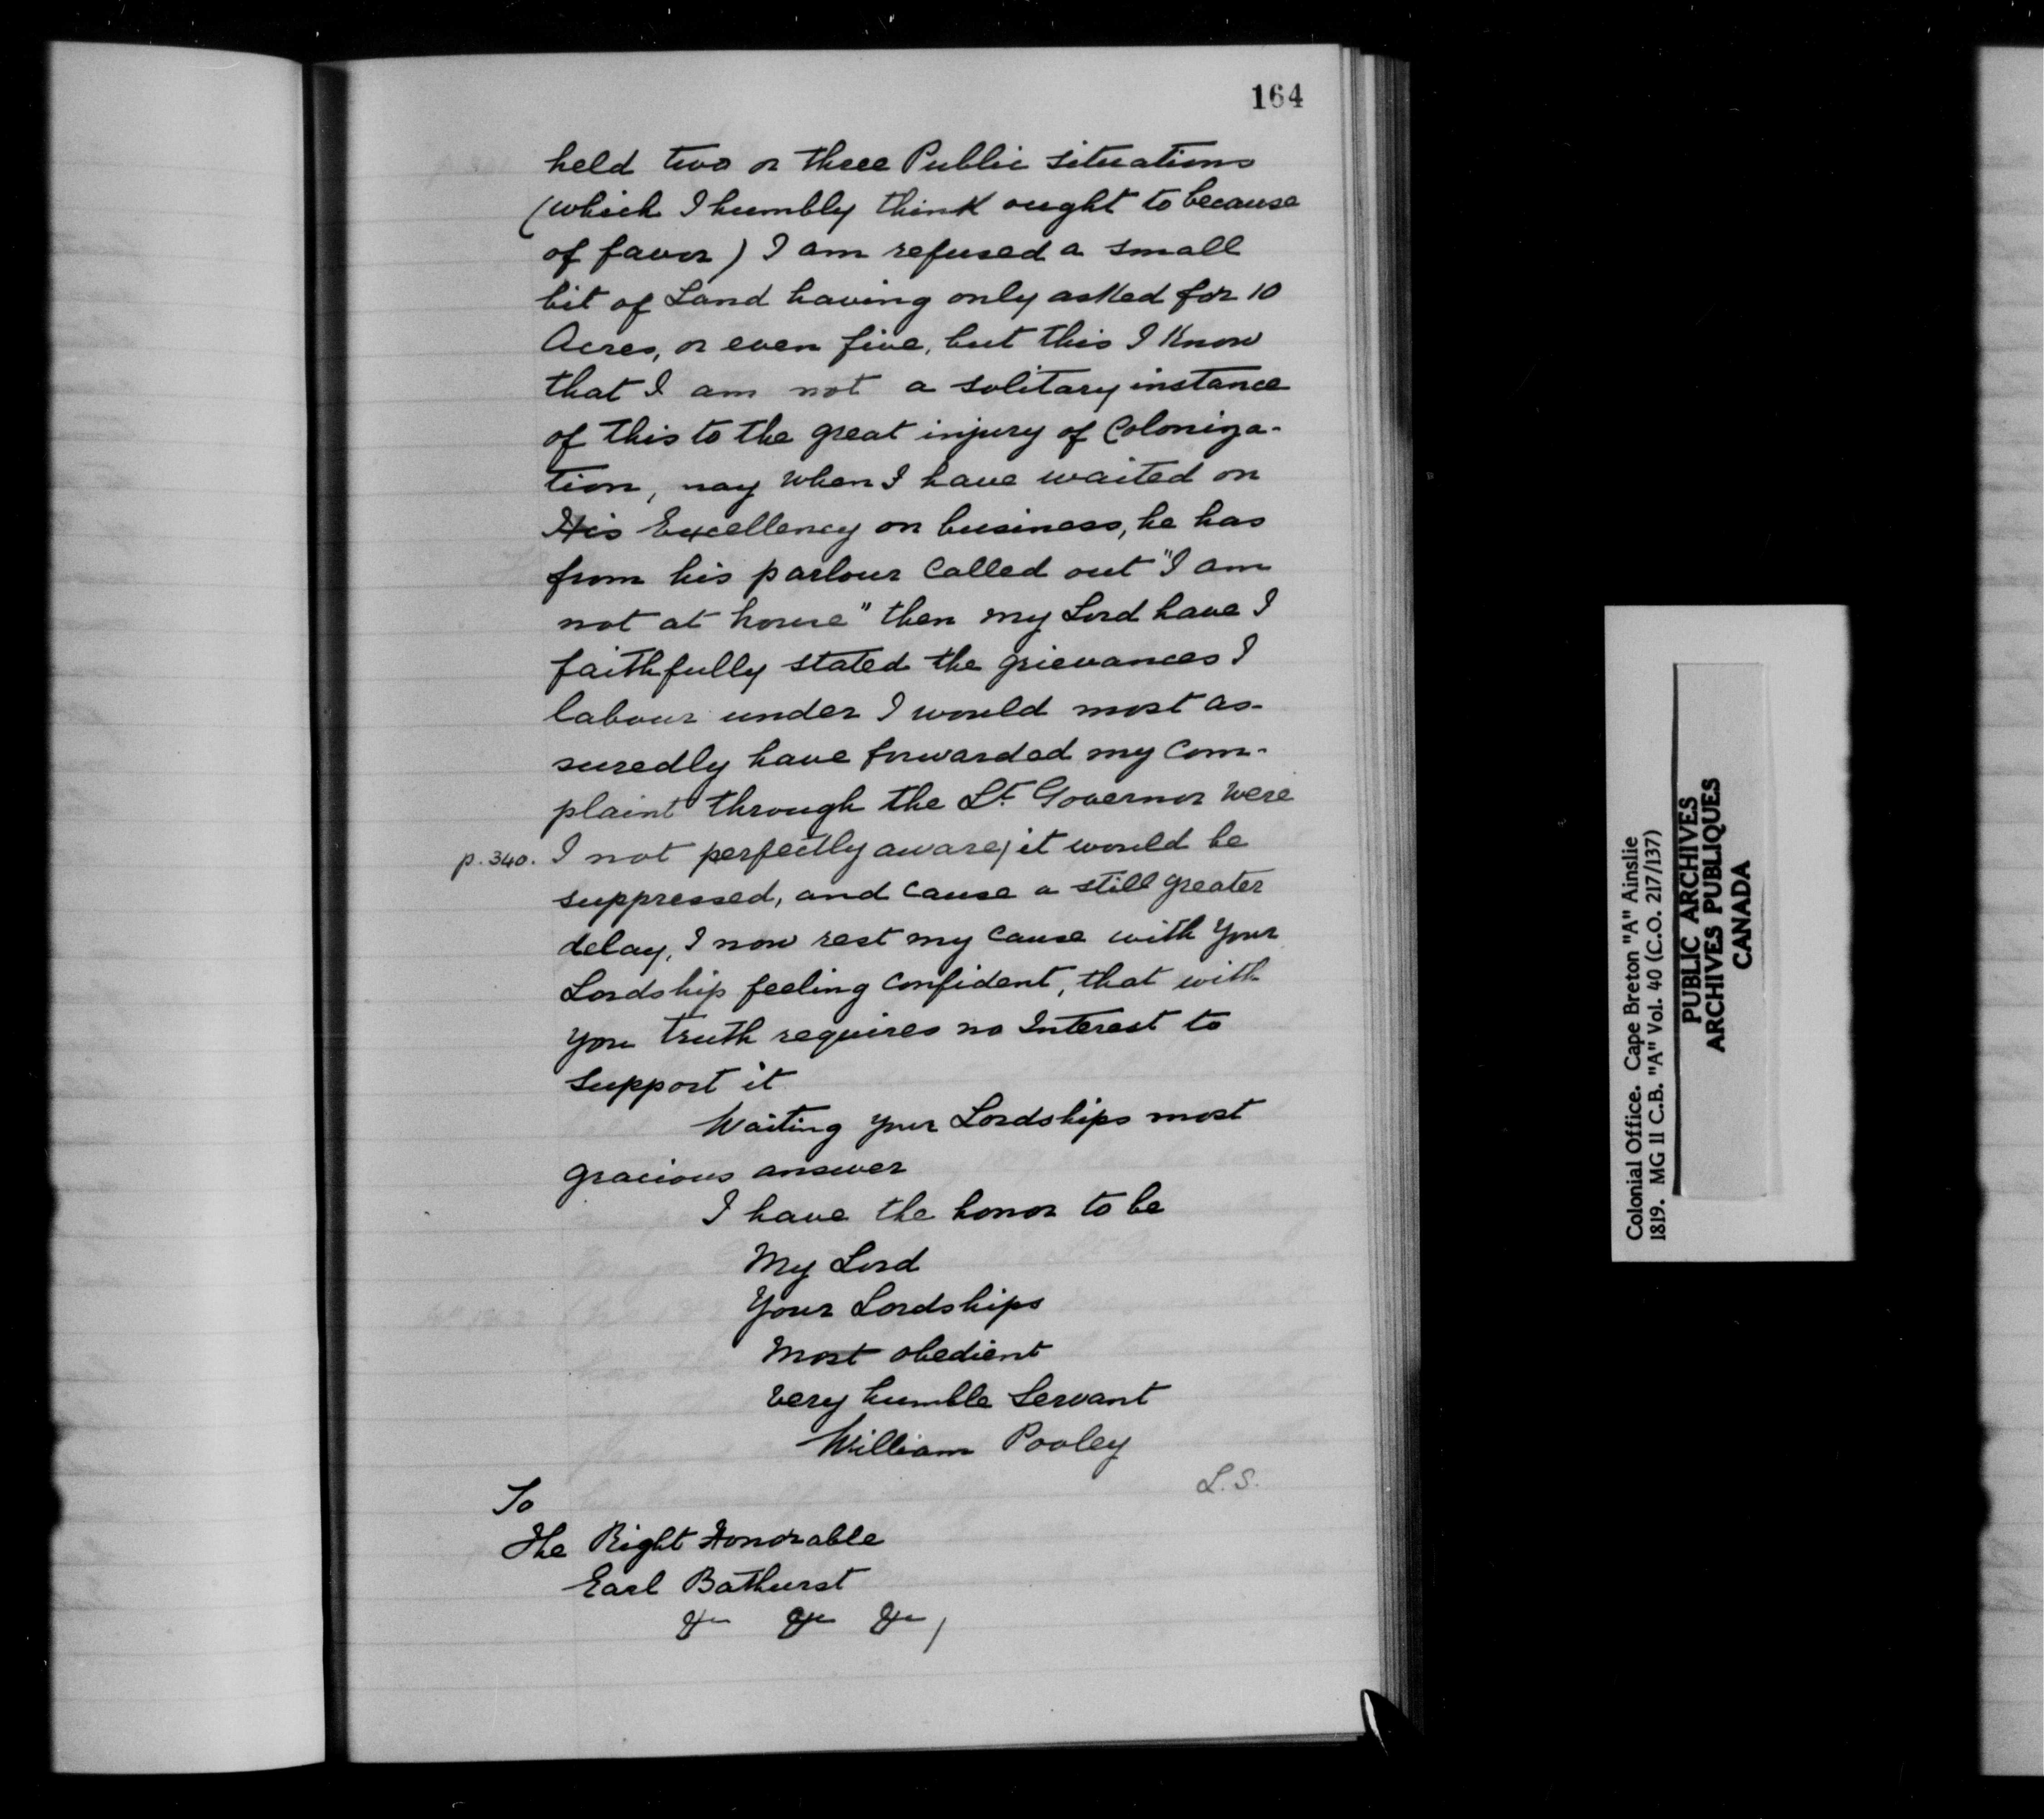 164
held two or three Public situations
(which I humbly think ought to because
of favor) I am refused a small
bit of Land having only asked for 10
Acres, or even five, but this I know
that I am not a solitary instance
of this to the great injury of Coloniza-
tion, nay when I have waited on
His Excellency on business, he has
from his parlour called out "I am
not at home" then my Lord have I
faithfully stated the grievances I
labour under I would most as-
suredly have forwarded my com-
plaint through the Lt. Governor were
p. 340. I not perfectly aware, it would be
suppressed, and cause a still greater
delay, I now rest my cause with Your
Lordship feeling confident, that with
you truth requires no Interest to
support it
Waiting your Lordships most
gracious answer
I have the honor to be
My Lord
Your Lordships
Most obedient
very humble Servant
William Pooley
L.S.
To
The Right Honorable
Earl Bathurst
&c &c &c,
Colonial Office. Cape Breton "A" Ainslie
1819. MG 11 C.B. "A" Vol. 40 (C.O. 217/137)
PUBLIC ARCHIVES
ARCHIVES PUBLIQUES
CANADA